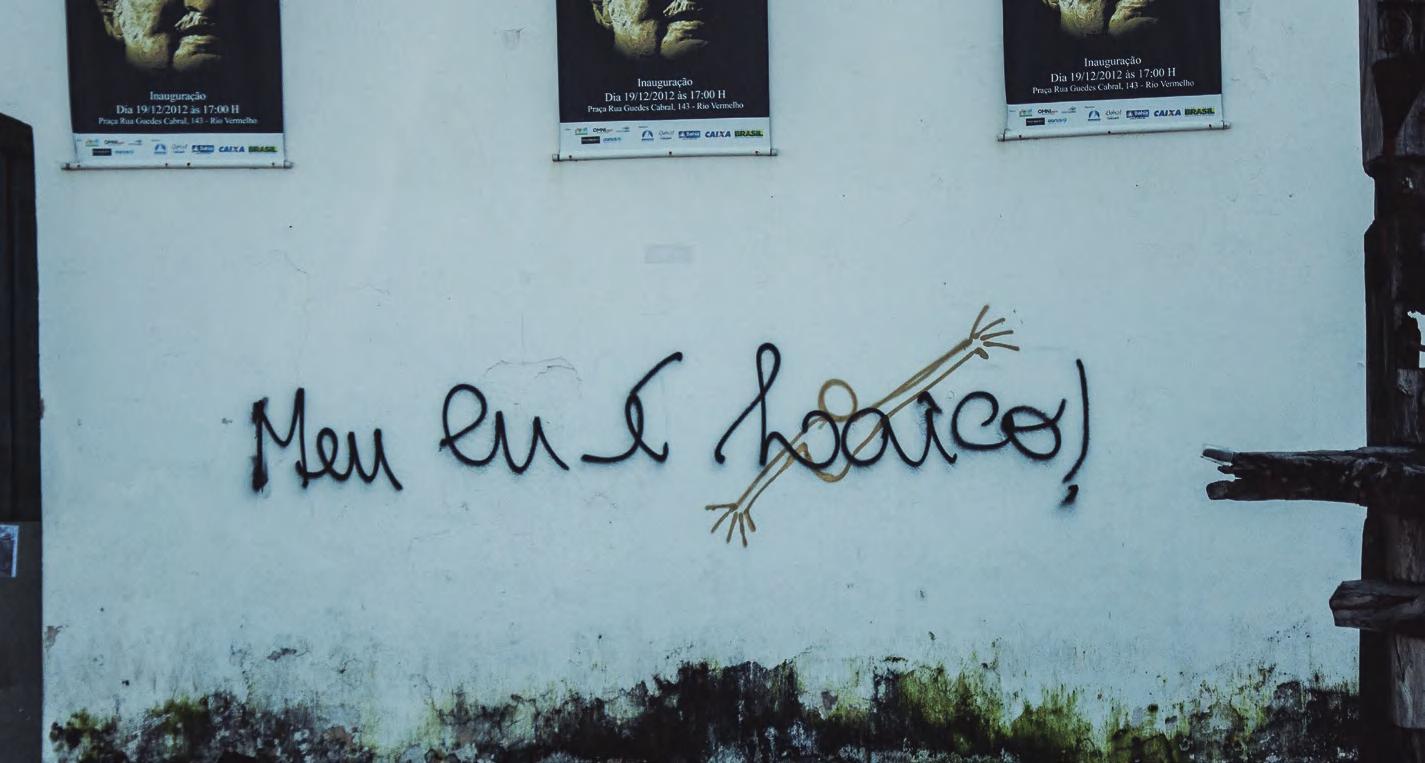 Inauguração
Dia 19/12/2012 às 17:00 H
Praça Rua Guedes Cabral, 143 - Rio Vermelho
CAIXA BRASIL
Inauguração
Dia 19/12/2012 às 17:00 H
Praça Rua Guedes Cabral, 143 - Rio Vermelho
OMNI Bahia CAIXA BRASIL
Inauguração
Dia 19/12/2012 às 17:00 H
Praça Rua Guedes Cabral, 143 - Rio Vermelho
OMNI Bahia CAIXA BRASIL
Meu eu é Laico!